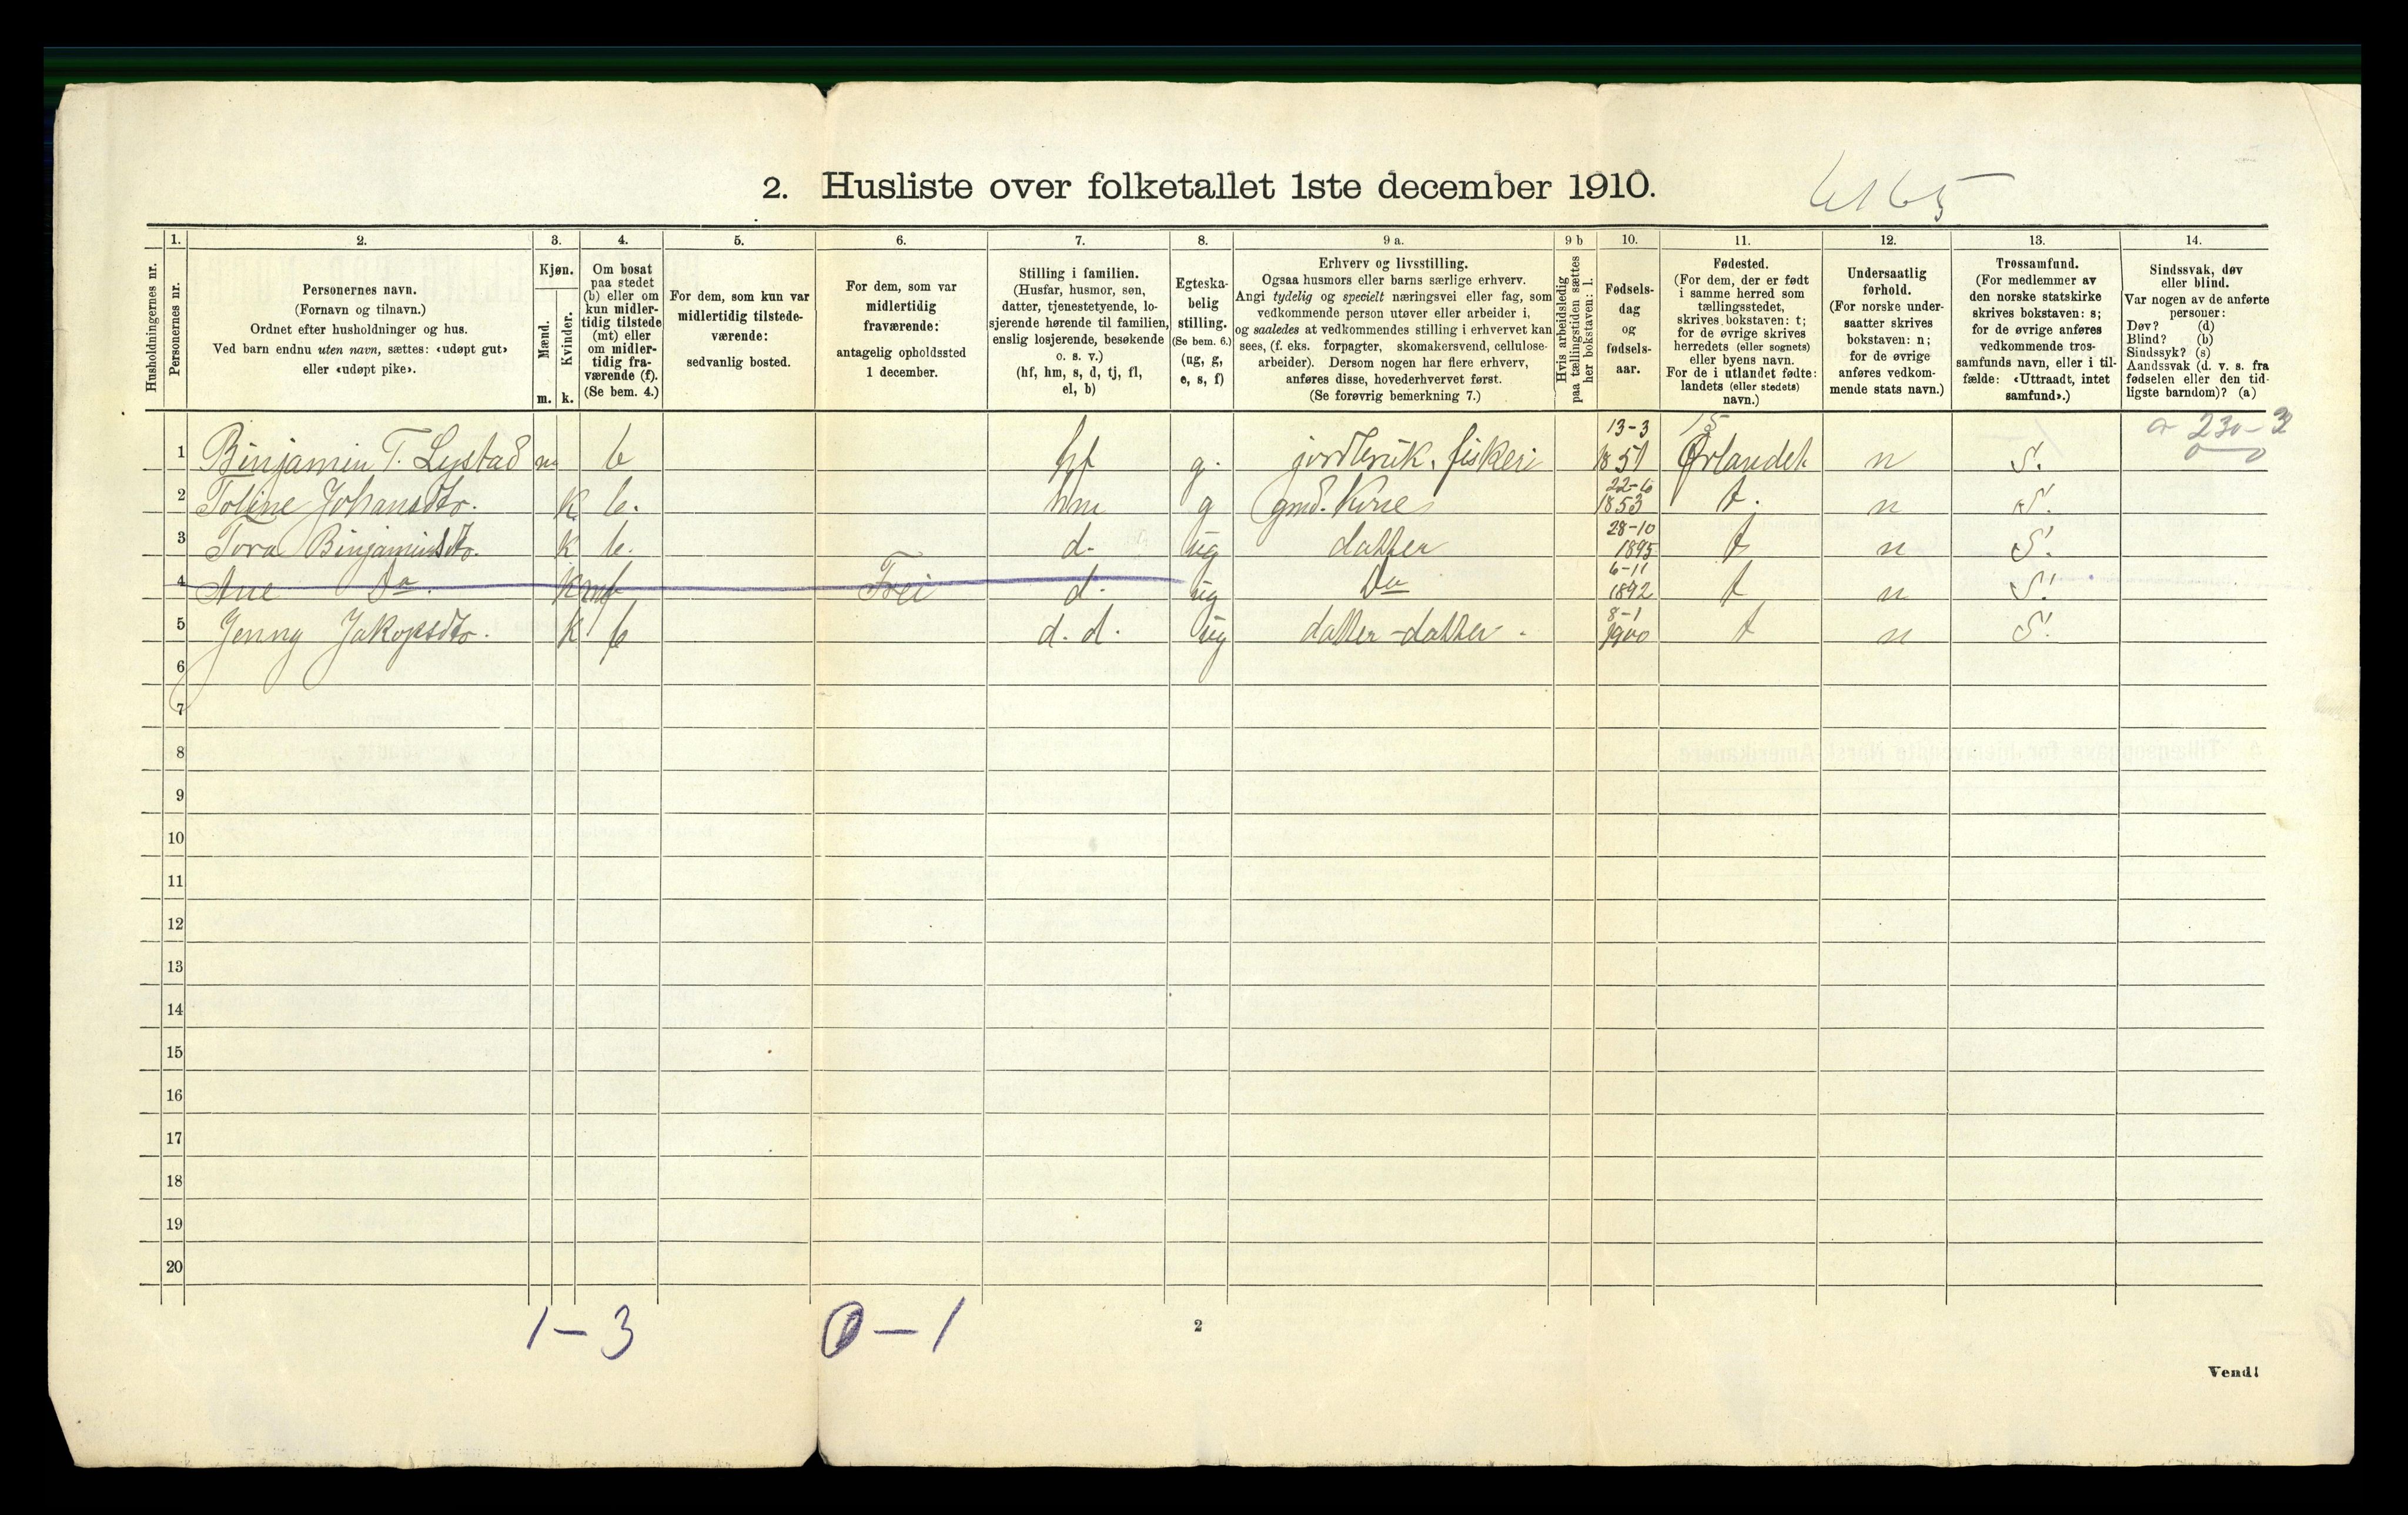 2. Husliste over folketallet 1ste december 1910.
6165
Husholdningernes nr.
1.
Personernes nr.
2.
Personernes navn.
(Fornavn og tilnavn.)
Ordnet efter husholdninger og hus.
Ved barn endnu uten navn, sættes: «udøpt gut»
eller «udøpt pike».
3.
Kjøn.
Mænd.
Kvinder.
m. k.
4.
Om bosat
paa stedet
(b) eller om
kun midler-
tidig tilstede
(mt) eller
om midler-
tidig fra-
værende (f).
(Se bem. 4.)
5.
For dem, som kun var
midlertidig tilstede-
værende:
sedvanlig bosted.
6.
For dem, som var
midlertidig
fraværende:
antagelig opholdssted
1 december.
7.
Stilling i familien.
(Husfar, husmor, søn,
datter, tjenestetyende, lo-
sjerende hørende til familien,
enslig losjerende, besøkende
o. s. v.)
(hf, hm, s, d, tj, fl,
el, b)
8.
Egteska-
belig
stilling.
(Se bem. 6.)
(ug, g,
e, s, f)
9 a.
Erhverv og livsstilling.
Ogsaa husmors eller barns særlige erhverv.
Angi tydelig og specielt næringsvei eller fag, som
vedkommende person utøver eller arbeider i,
og saaledes at vedkommendes stilling i erhvervet kan
sees, (f. eks. forpagter, skomakersvend, cellulose-
arbeider). Dersom nogen har flere erhverv,
anføres disse, hovederhvervet først.
(Se forøvrig bemerkning 7.)
9 b
Hvis arbeidsledig
paa tællingstiden sættes
her bokstaven: l.
10.
Fødsels-
dag
og
fødsels-
aar.
11.
Fødested.
(For dem, der er født
i samme herred som
tællingsstedet,
skrives bokstaven: t;
for de øvrige skrives
herredets (eller sognets)
eller byens navn.
For de i utlandet fødte:
landets (eller stedets)
navn.)
12.
Undersaatlig
forhold.
(For norske under-
saatter skrives
bokstaven: n;
for de øvrige
anføres vedkom-
mende stats navn.)
13.
Trossamfund.
(For medlemmer av
den norske statskirke
skrives bokstaven: s;
for de øvrige anføres
vedkommende tros-
samfunds navn, eller i til-
fælde: «Uttraadt, intet
samfund».)
14.
Sindssvak, døv
eller blind.
Var nogen av de anførte
personer:
Døv? (d)
Blind? (b)
Sindssyk? (s)
Aandssvak (d. v. s. fra
fødselen eller den tid-
ligste barndom)? (a)
1 Binjamin T. Lystad m b hf g. jordbruk. fiskeri 13-3 1851 15 Ørlandet n S. 230-2
2 Toline Johansdtr. K b. hm g gmd. Kone 22-6 1853 t. n S.
3 Tora Binjaminsdtr. K b. d. ug datter 28-10 1895 t n S.
4 Ane Do. K mt Frei d. ug Do 6-11 1892 t n S.
5 Jenny Jakopsdtr. K b d. d. ug datter-datter. 8-1 1900 t n S.
6
7
8
9
10
11
12
13
14
15
16
17
18
19
20
1-3 0-1
2
Vend!